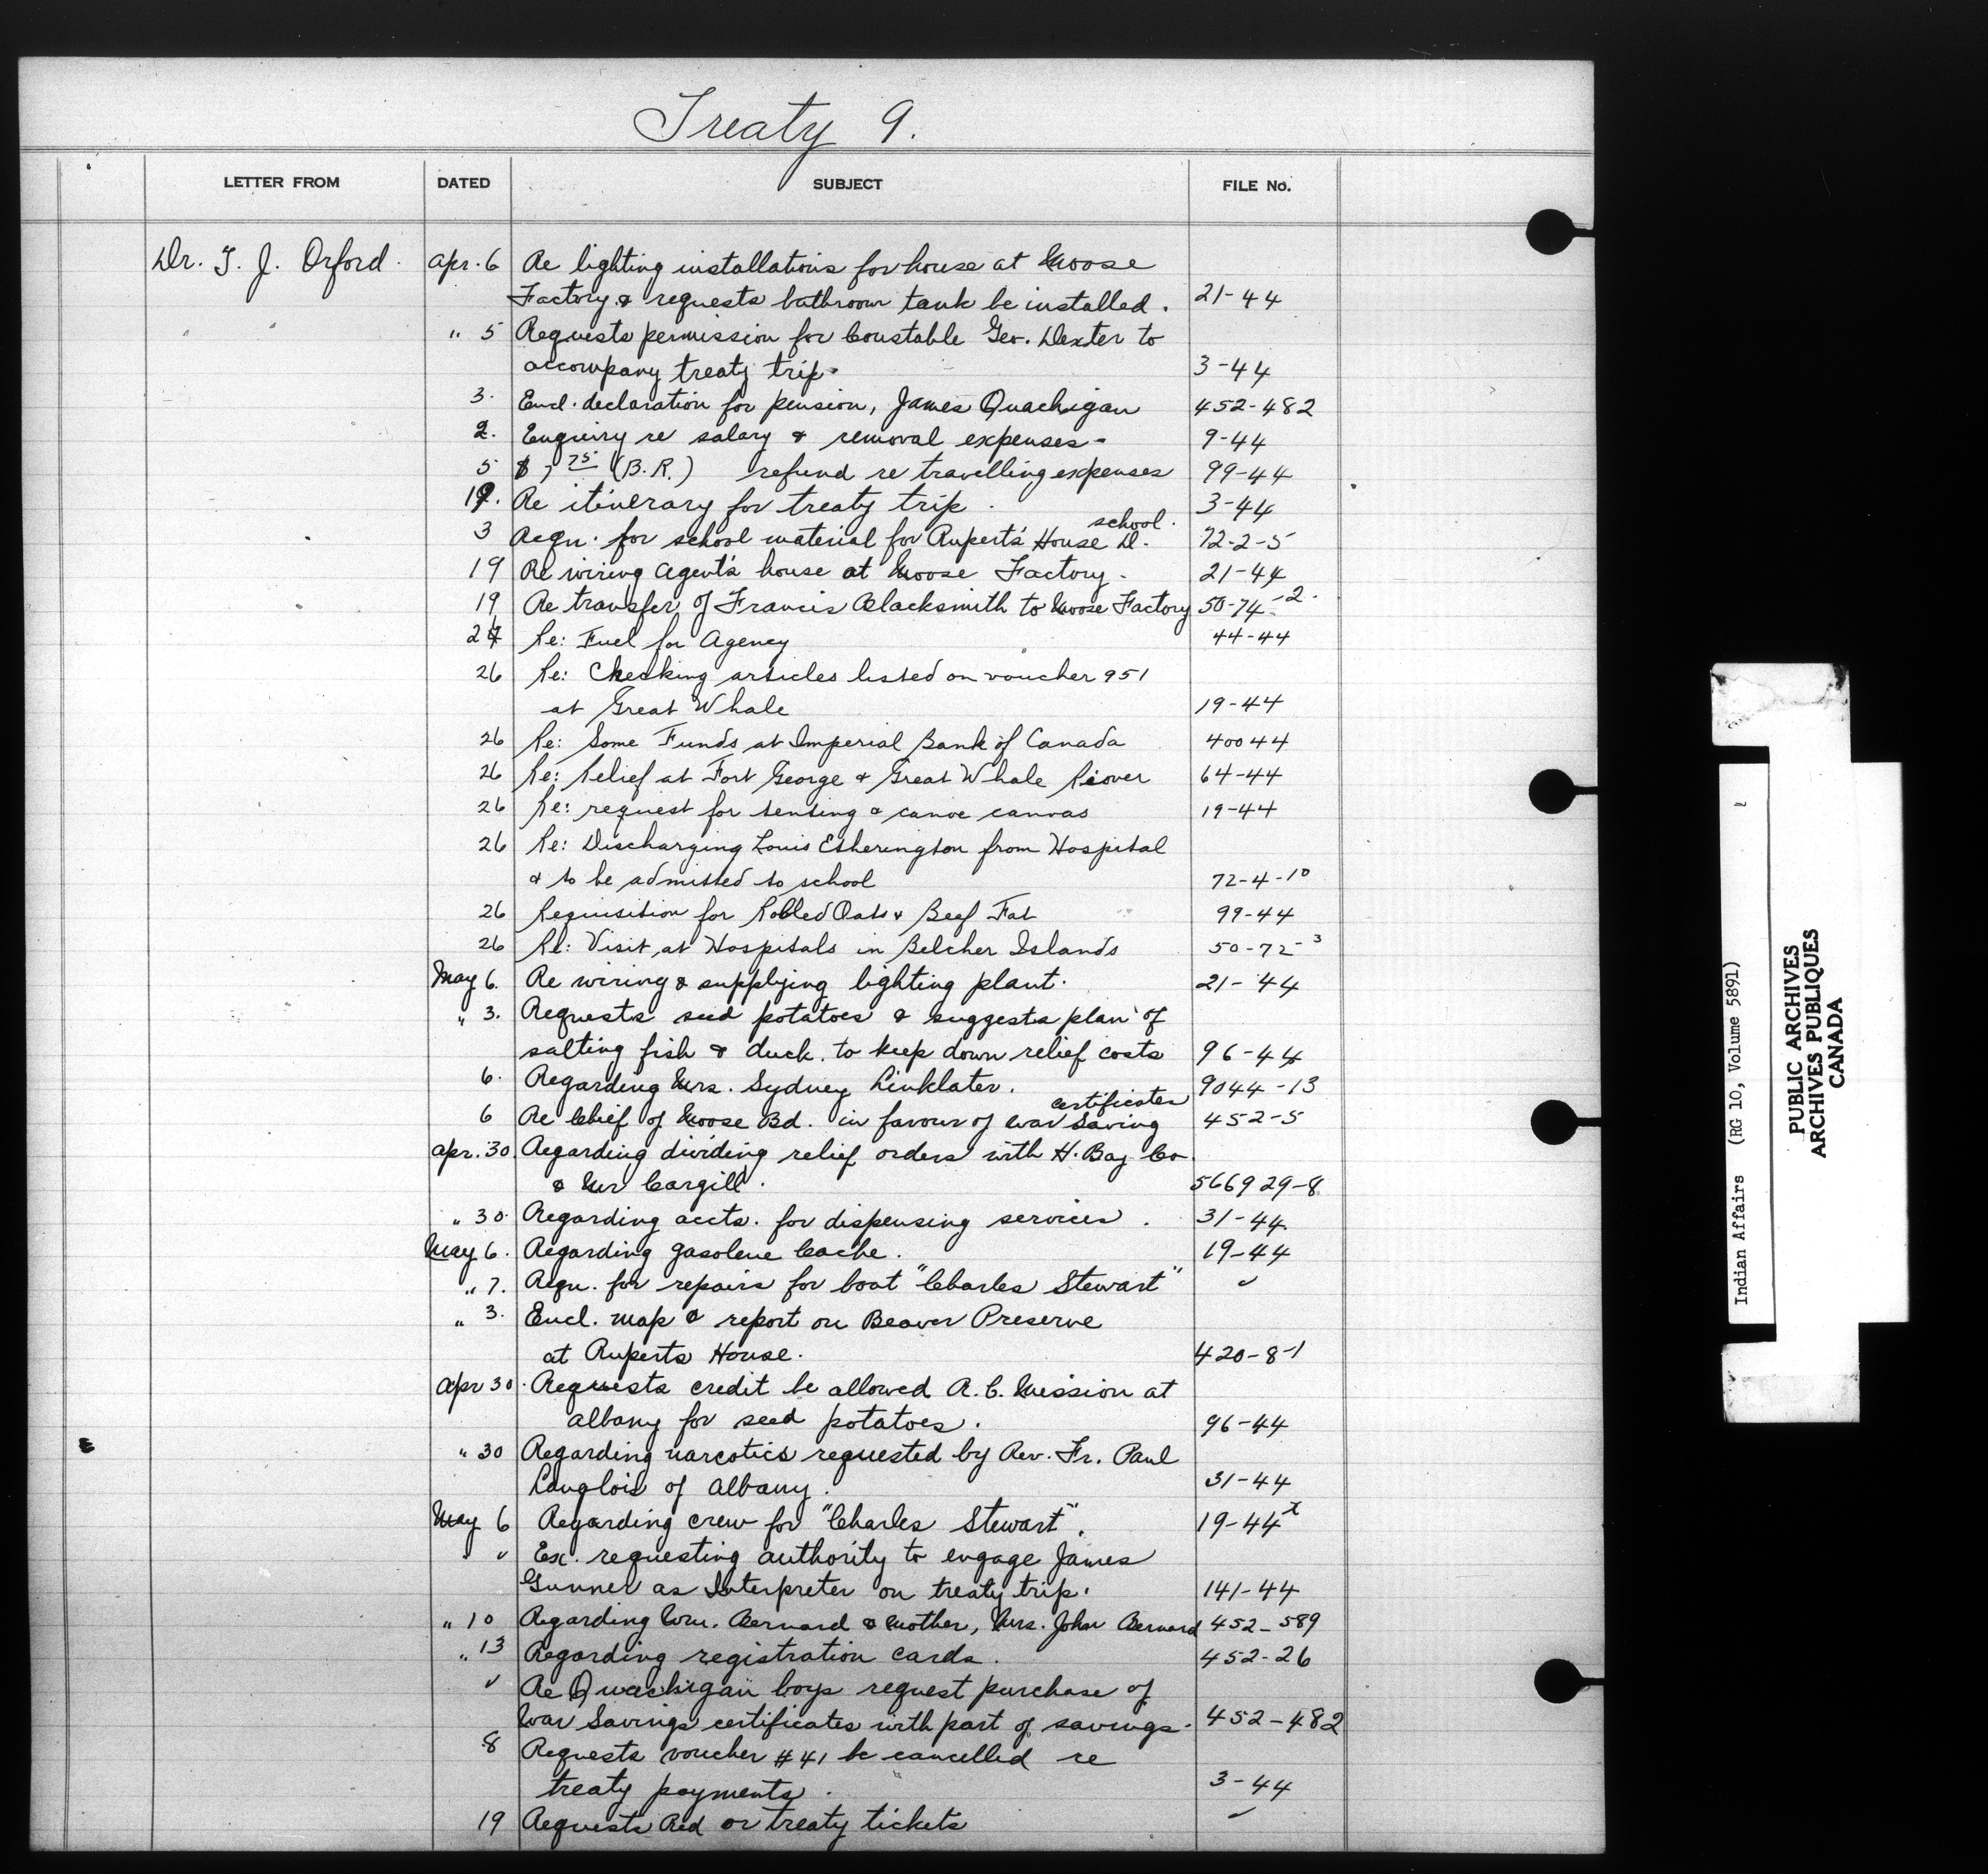 Treaty 9.
LETTER FROM DATED SUBJECT FILE No.
Dr. T. J. Orford. Apr. 6 Re lighting installations for house at Moose
Factory & requests bathroom tank be installed. 21-44
" " " 5 Requests permission for Constable Geo. Dexter to
accompany treaty trip. 3-44
3. Encl. declaration for pension, James Quachigan 452-482
2. Enquiry re salary & removal expenses - 9-44
5 $7 75 (B.R.) refund re travelling expenses 99-44
19. Re itinerary for treaty trip. 3-44
school.
3 Reqn. for school material for Rupert's House D. 72-2-5
19 Re wiring Agent's house at Moose Factory. 21-44
19 Re transfer of Francis Blacksmith to Moose Factory 50-74-2.
24 Re: Fuel for Agency 44-44
26 Re: Checking articles listed on voucher 951
at Great Whale 19-44
26 Re: Some Funds at Imperial Bank of Canada 40044
26 Re: Relief at Fort George & Great Whale River 64-44
26 Re: request for tenting & canoe canvas 19-44
26 Re: Discharging Louis Etherington from Hospital
& to be admitted to school 72-4-10
26 Requisition for Rolled Oats & Beef Fat 99-44
26 Re: Visit at Hospitals in Belcher Islands 50-72-3
May 6. Re wiring & supplying lighting plant. 21-44
" 3. Requests seed potatoes & suggests plan of
salting fish & duck. to keep down relief costs 96-44
6. Regarding Mrs. Sydney Linklater. 9044-13
certificates
6 Re Chief of Moose Bd. in favour of War Saving 452-5
Apr. 30. Regarding dividing relief orders with H. Bay Co.
& Mr Cargill. 566929-8
" 30. Regarding accts. for dispensing services. 31-44
May 6. Regarding gasolene Cache. 19-44
" 7. Reqn. for repairs for boat "Charles Stewart" "
" 3. Encl. map & report on Beaver Preserve
at Ruperts House. 420-8-1
Apr 30. Requests credit be allowed R.C. Mission at
Albany for seed potatoes. 96-44
" 30 Regarding narcotics requested by Rev. Fr. Paul
Langlois of Albany. 31-44
May 6 Regarding crew for "Charles Stewart". 19-44x
" " Ex. requesting authority to engage James
Gunner as Interpreter on treaty trip. 141-44
" 10 Regarding Wm. Bernard & Mother, Mrs. John Bernard 452-589
" 13 Regarding registration cards. 452-26
" Re Quachigan boys request purchase of
War Savings certificates with part of savings. 452-482
8 Requests voucher #41 be cancelled re
treaty payments. 3-44
19 Requests Red or treaty tickets "
Indian Affairs (RG 10, Volume 5891)
PUBLIC ARCHIVES
ARCHIVES PUBLIQUES
CANADA